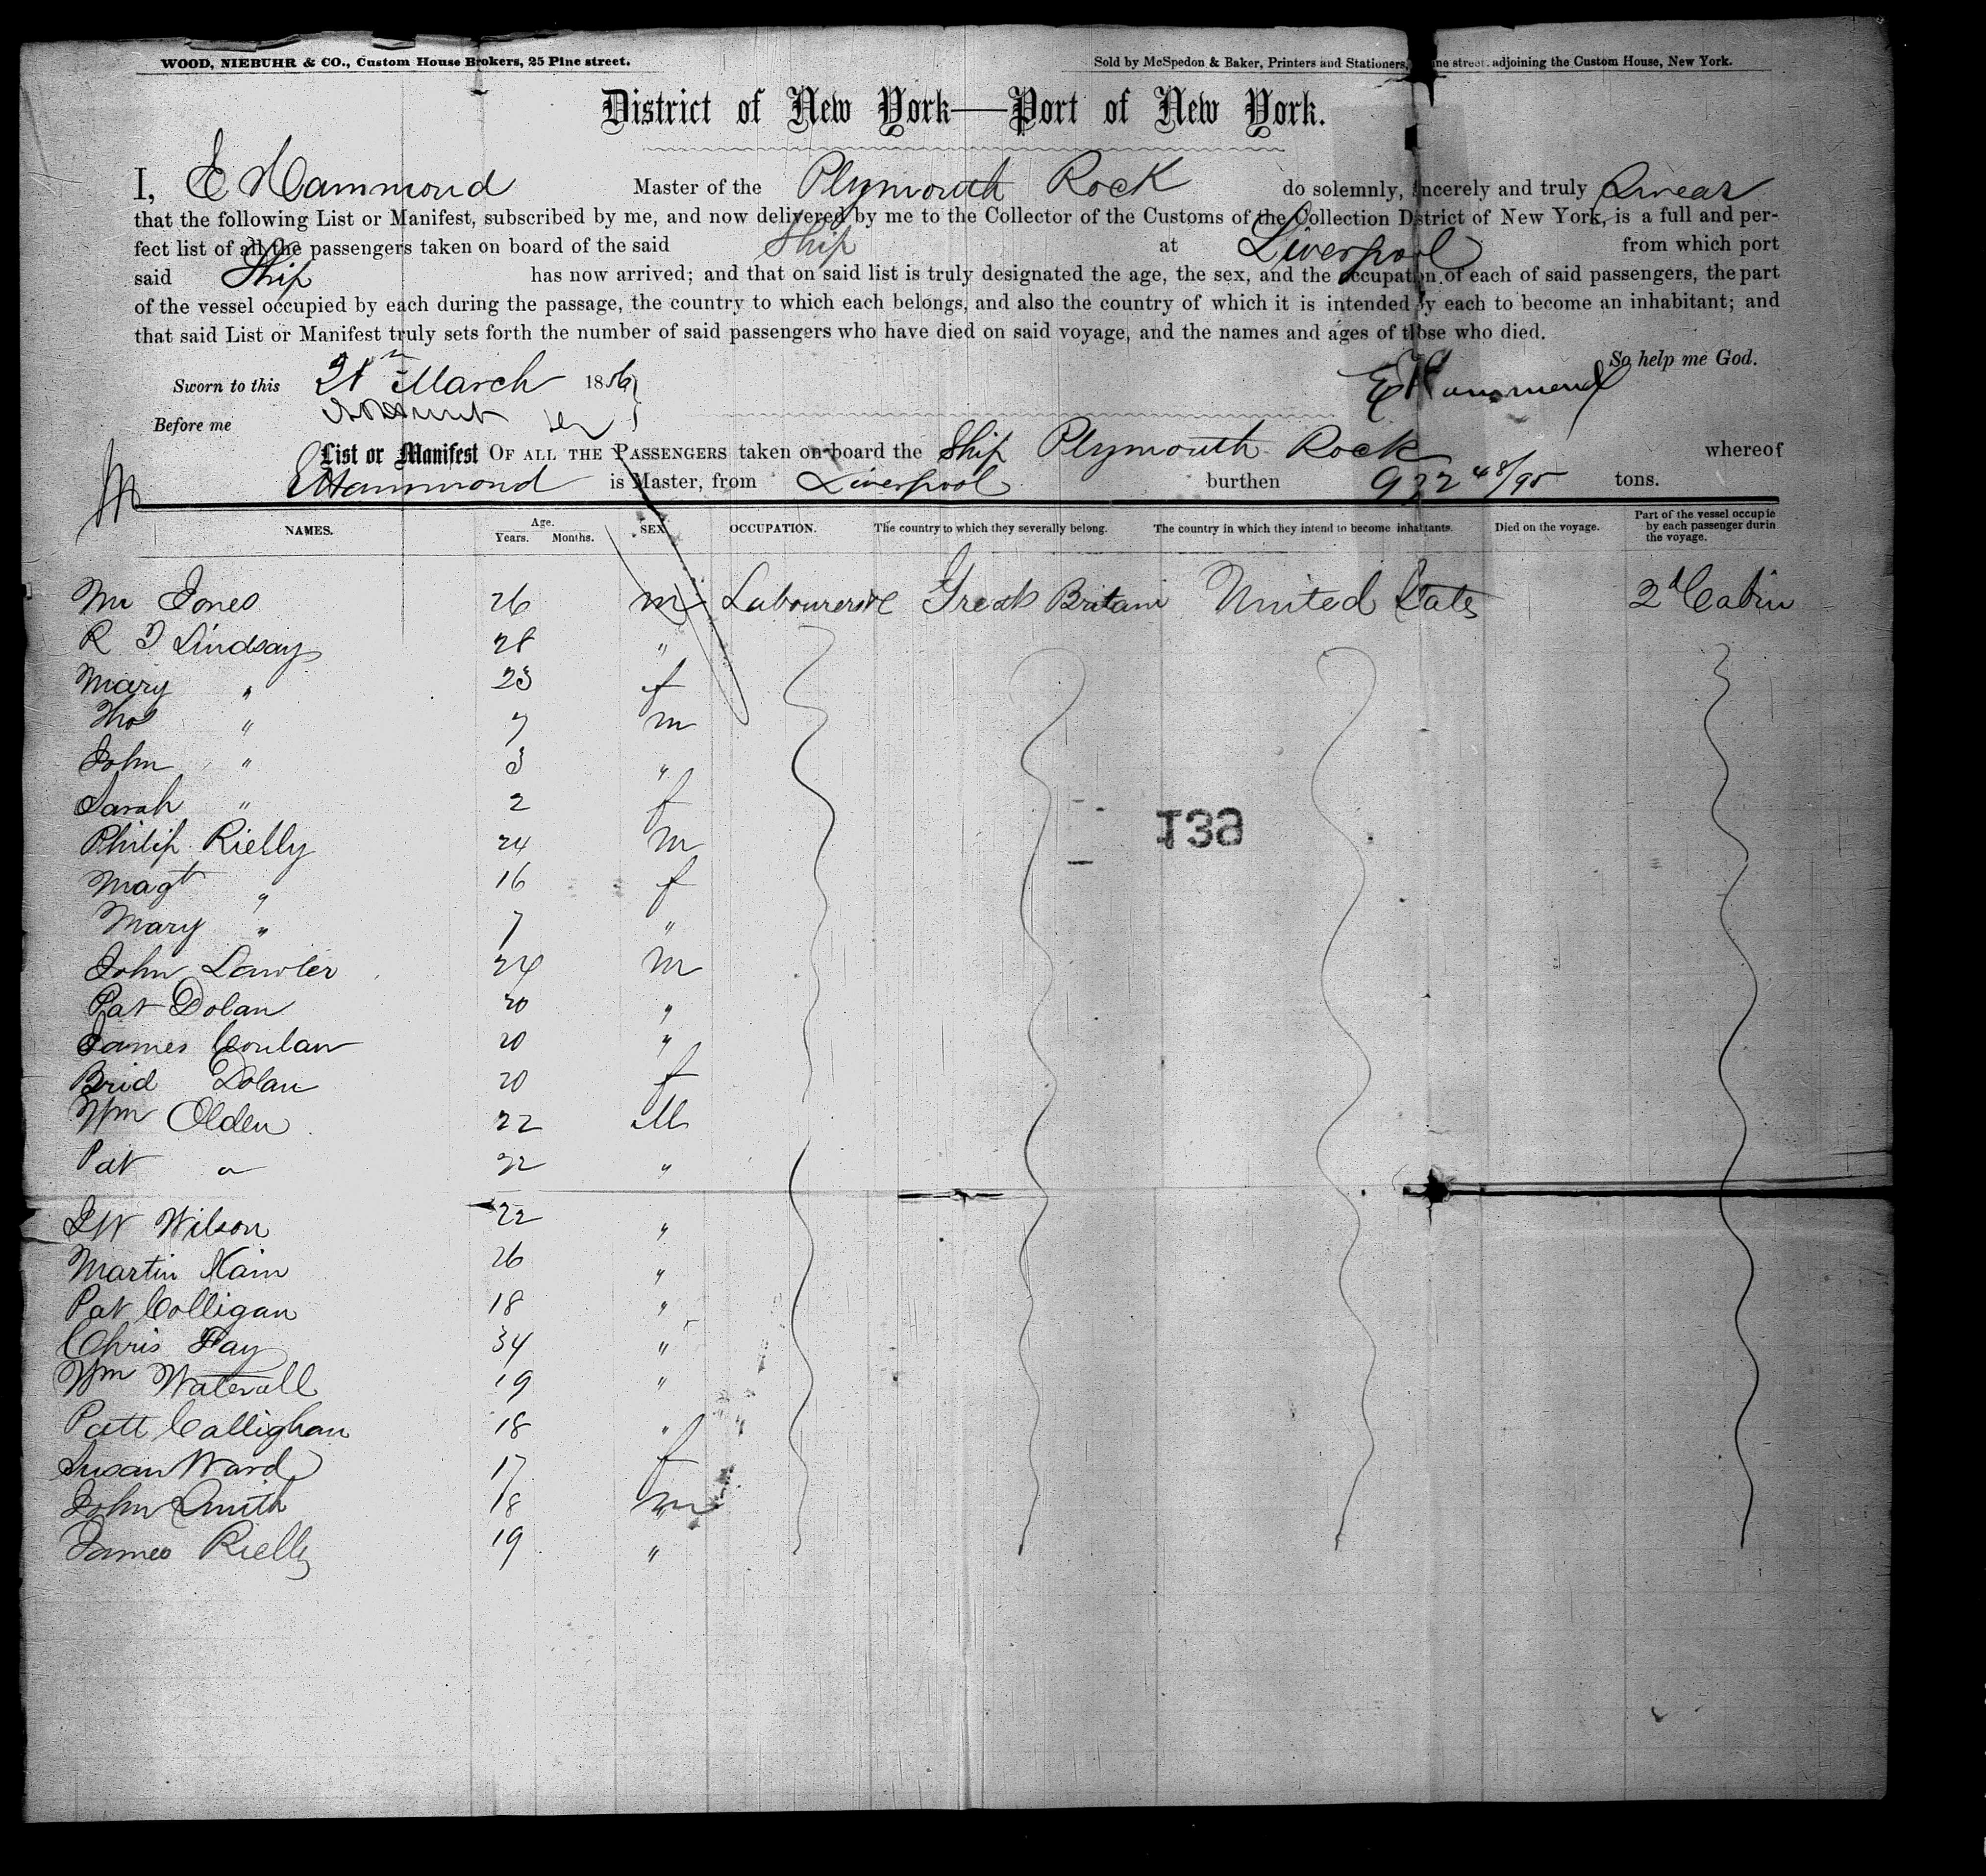 WOOD, NIEBUHR & CO., Custom House Brokers, 25 Pine street. Sold by McSpedon & Baker, Printers and Stationers, ne street. adjoining the Custom House, New York.
District of New York—Port of New York.
I, E Hammond Master of the Plymouth Rock do solemnly, sincerely and truly Swear
that the following List or Manifest, subscribed by me, and now delivered by me to the Collector of the Customs of the Collection District of New York, is a full and per-
fect list of all the passengers taken on board of the said Ship at Liverpool from which port
said Ship has now arrived; and that on said list is truly designated the age, the sex, and the occupation of each of said passengers, the part
of the vessel occupied by each during the passage, the country to which each belongs, and also the country of which it is intended by each to become an inhabitant; and
that said List or Manifest truly sets forth the number of said passengers who have died on said voyage, and the names and ages of those who died.
So help me God.
Sworn to this 21 March 1856 E Hammond
Before me
List or Manifest OF ALL THE PASSENGERS taken on board the Ship Plymouth Rock whereof
E Hammond is Master, from Liverpool burthen 922 48/95 tons.
NAMES. Age. Years. Months. SEX. OCCUPATION. The country to which they severally belong. The country in which they intend to become inhabitants. Died on the voyage. Part of the vessel occupie by each passenger durin the voyage.
Mr Jones 26 m Great Britain United States 2d Cabin
R J Lindsay 28 "
Mary " 23 f
Thos " 7 m
John " 3 "
Sarah " 2 f
Philip Rielly 24 m
Magt " 16 f
Mary " 7 "
John Lawler 24 m
Pat Dolan 20 "
James Conlan 20 "
Brid Dolan 20 f
Wm Olden 22 M
Pat " 22 "
J W Wilson 22 "
Martin 26 "
Pat Colligan 18 "
Chris Fay 34 "
Wm Waterall 19 "
Patt Callighan 18 "
Susan Ward 17 f
John Smith 18 m
James Rielly 19 "
139